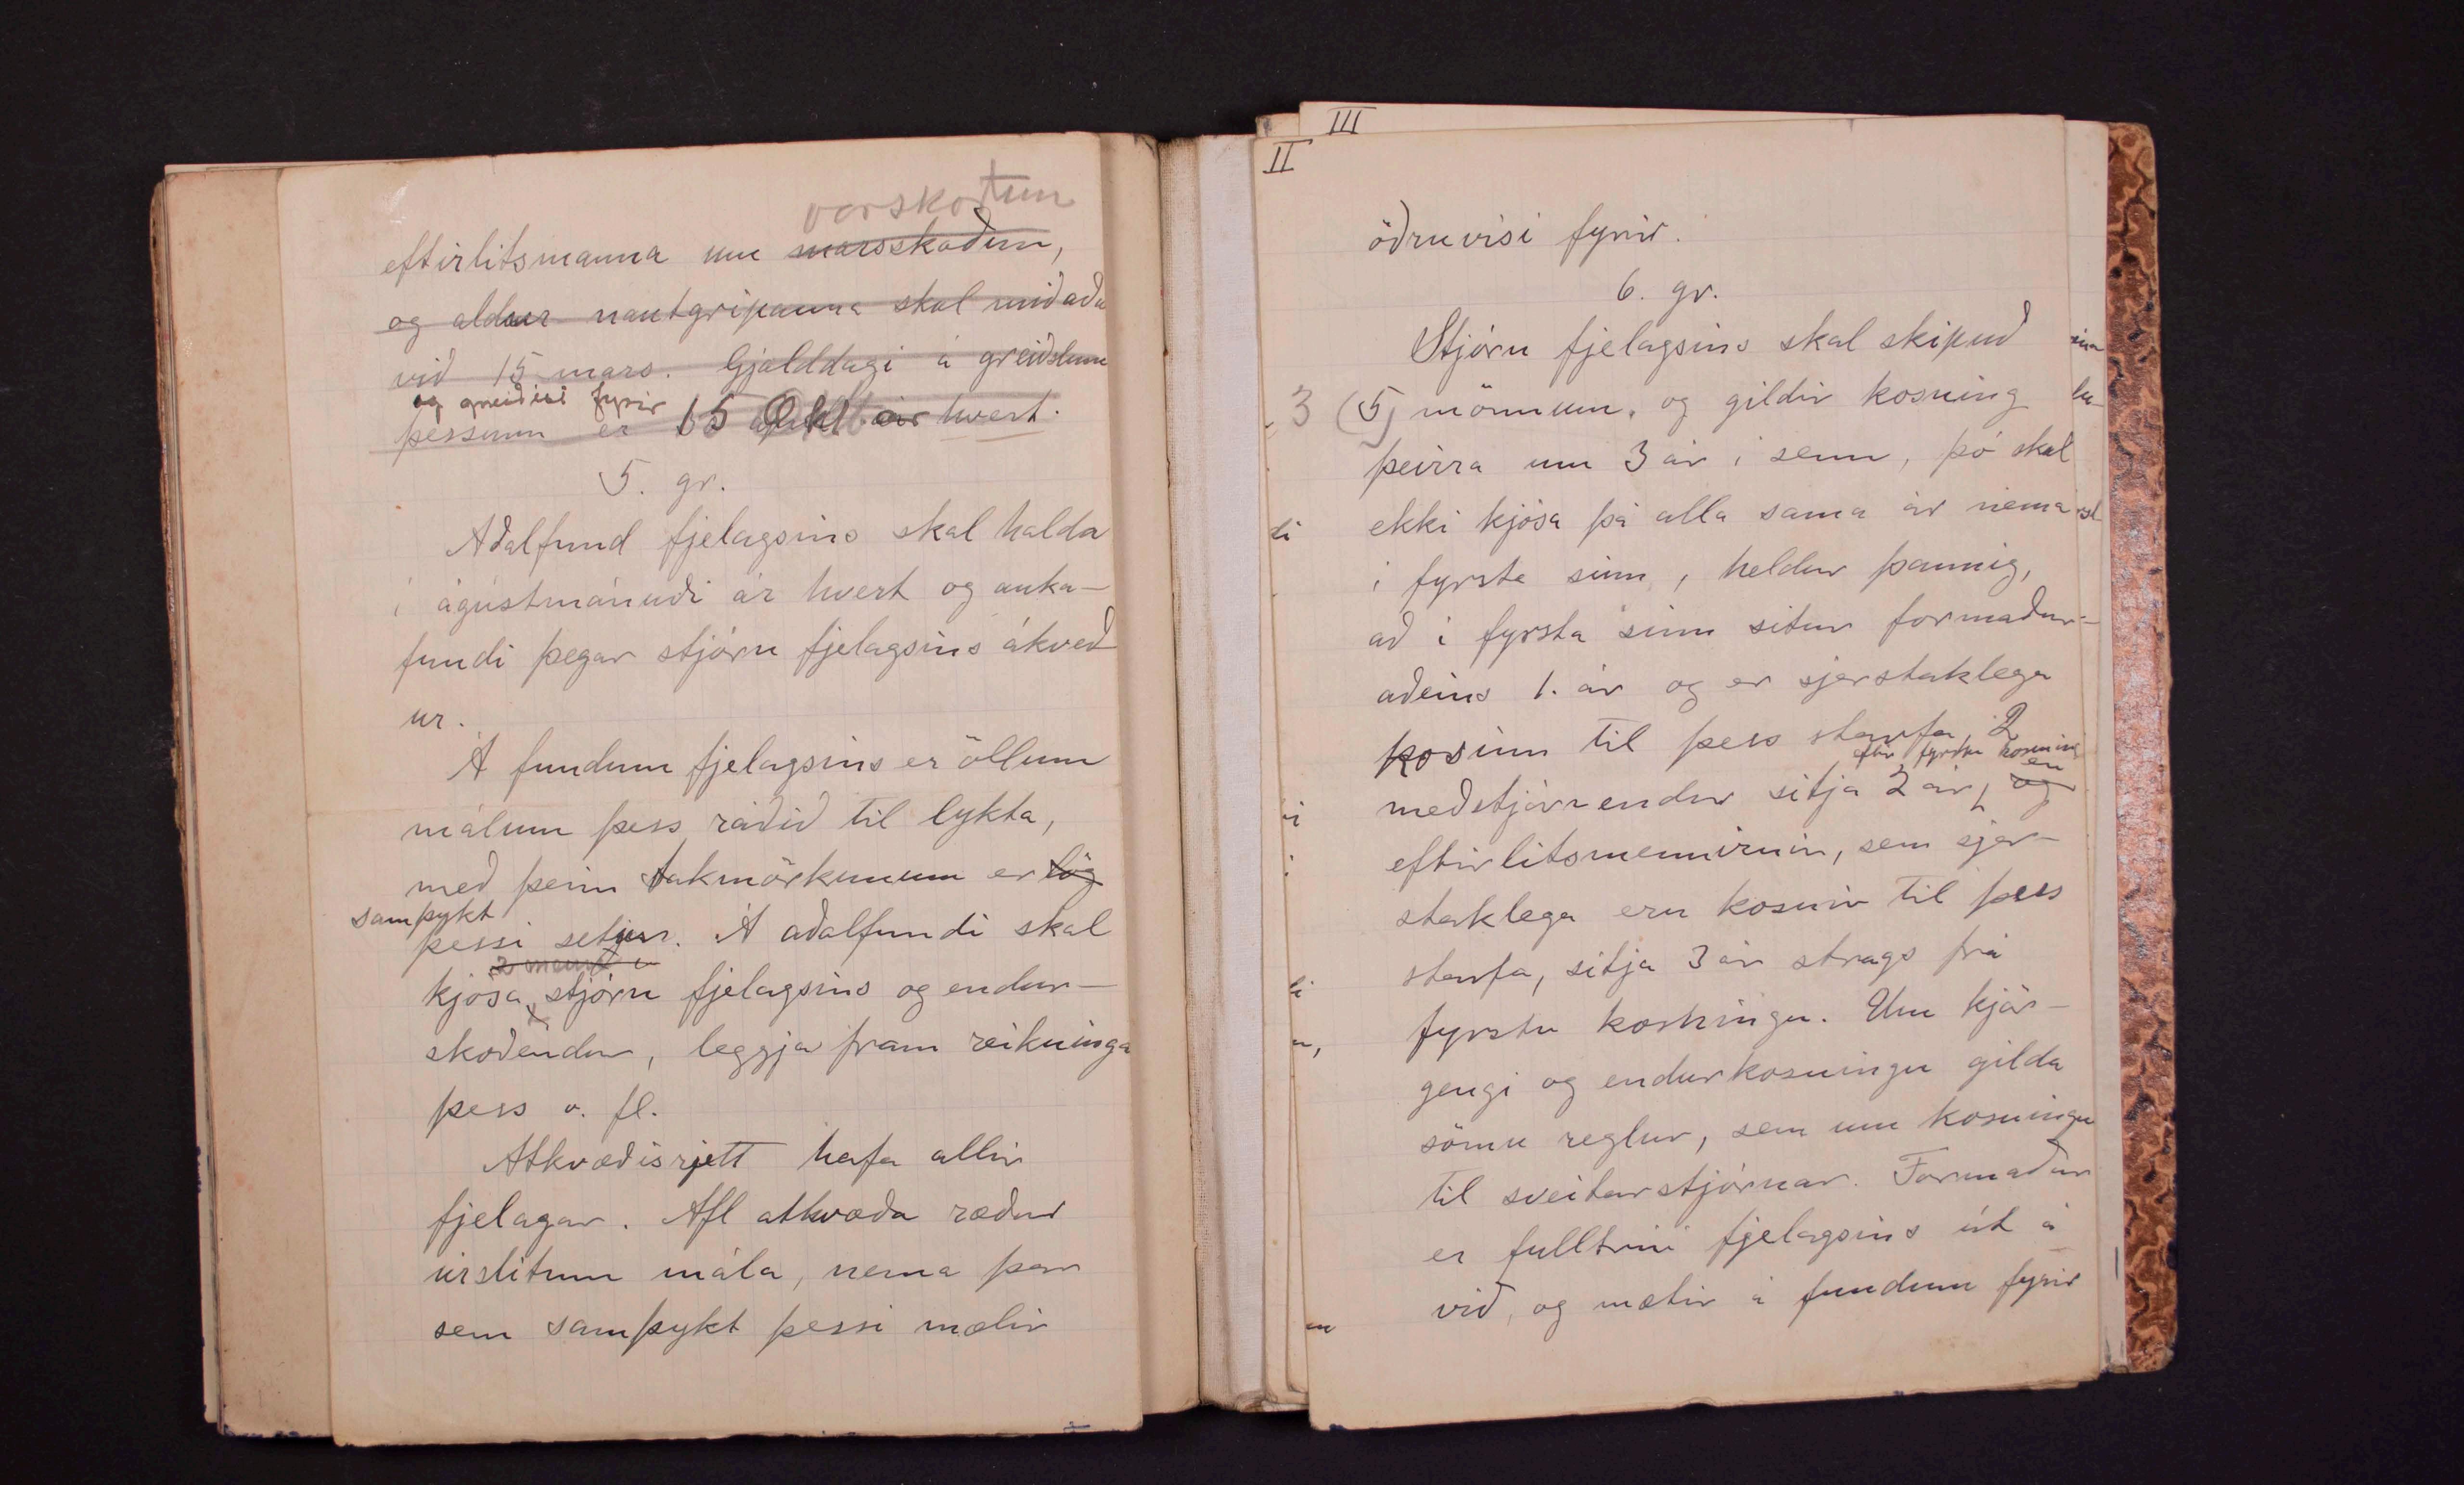 vorskoðun
eftirlitsmanna um marsskoðun,
og aldur nautgripanna skal miðaðu
við 15 mars. Gjalddagi á greiðslum
og greiðist fyrir
þessum er 15 Okt ár hvert.
5. gr.
Aðalfund fjelagsins skal halda
í ágústmánuði ár hvert og auka-
fundi þegar stjórn fjelagsins ákveð
ur.
Á fundum fjelagsins er öllum
málum þess ráðið til lykta,
með þeim takmörkunum er lög
samþykt
þessi setur. Á aðalfundi skal
2 menn í
kjósa stjórn fjelagsins og endur-
skoðendur, leggja fram reikninga
þess o. fl.
Atkvæðisrjett hafa allir
fjelagar. Afl atkvæða ræður
úrslitum mála, nema þar
sem samþykt þessi mælir
III
II
öðruvísi fyrir.
6. gr.
Stjórn fjelagsins skal skipuð
3 (5) mönnum, og gildir kosning
þeirra um 3 ár í senn, þó skal
ekki kjósa þá alla sama ár nema
í fyrsta sinn, heldur þannig,
að í fyrsta sinn situr formaður
aðeins 1. ár og er sjerstaklega
kosinn til þess starfa, 2
eftir fyrstu kosning en
meðstjórnendur sitja 2 ár, og
eftirlitsmennirnir, sem sjer-
staklega eru kosnir til þess
starfa, sitja 3 ár strags frá
fyrstu kosningu. Um kjör-
gengi og endurkosningu gilda
sömu reglur, sem um kosningu
til sveitarstjórnar. Formaður
er fulltrúi fjelagsins út á
við, og mætir á fundum fyrir